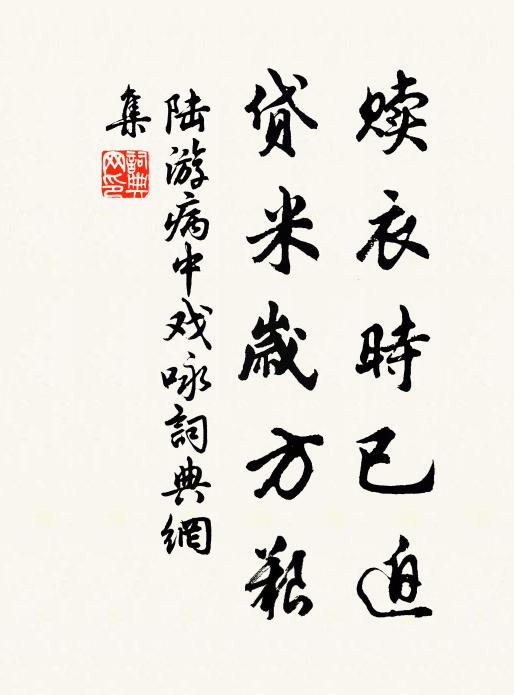 赎衣時已迫
貸米歲方艱
陆游病中戏咏詞典網
集
詞典网印